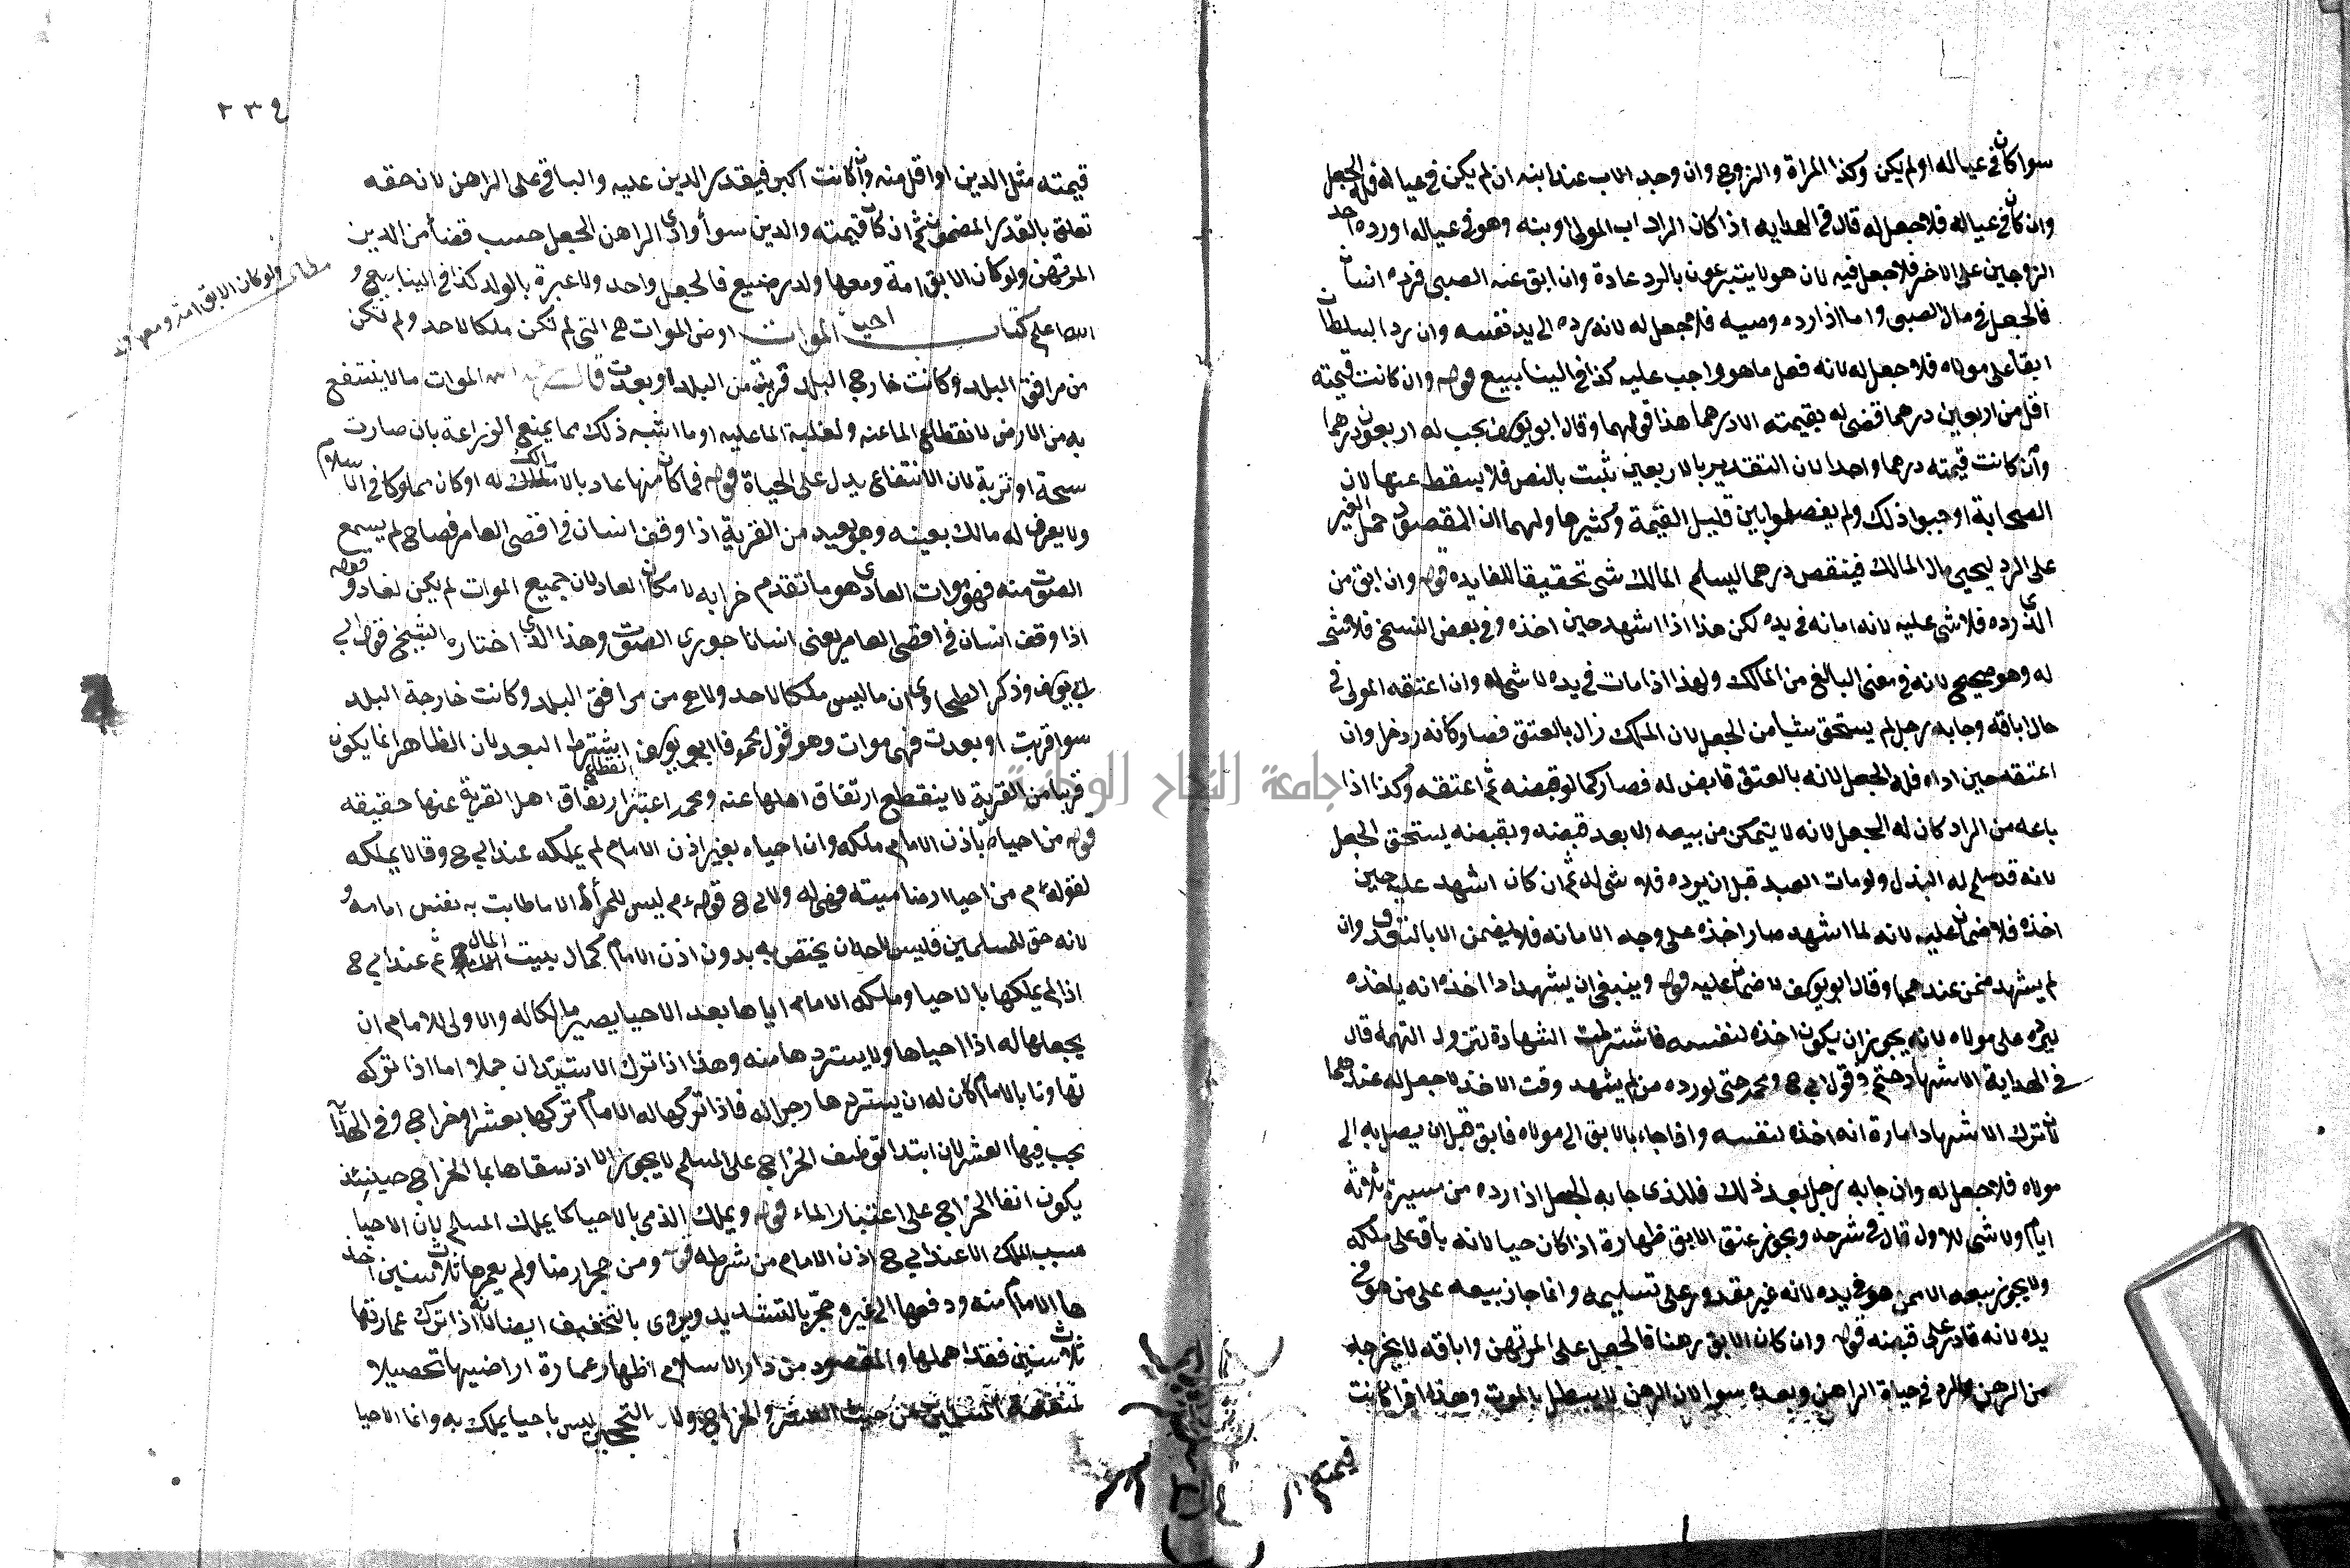 سوا كان في عياله او لم يكن وكذا المراة والزوج وان وجد الاب عند ابنه ان لم يكن في عياله فله الجعل
وان كان في عياله فلا جعل له قال في الهدايه اذا كان الراد اب المولى او بنه وهو في عياله او رده احد
الزوجين على الاخر فلا جعل فيه لان هولا يتبرعون بالرد عادة وان ابق عند الصبي فرده انسان
فالجعل في مال الصبي واما اذا رده وصيه فلا جعل له لانه رده الى يد نفسه وان رد السلطان
ابقا على مولاه فلا جعل له لانه فعل ما هو واجب عليه كذا في الينابيع قوله وان كانت قيمته
اقل من اربعين درهما قضي له بقيمته الا درهما هذا قولهما وقال ابو يوسف يجب له اربعون درهما
وان كانت قيمته درهما واحدا لان التقدير بالاربعين ثبت بالنص فلا يسقط عنها لان
الصحابة اوجبوا ذلك ولم يفصلوا بين قليل القيمة وكثيرها ولهما ان المقصود حمل الغير
على الرد ليحيى مال المالك فينقص درهما ليسلم المالك شي تحقيقا للفايده قوله وان ابق من
الذي رده فلا شي عليه لانه امانه في يده لكن هذا اذا اشهد حين اخذه وفي بعض النسخ فلا شي
له وهو صحيح لانه في معنى البائع من المالك ولهذا اذا مات في يده لا شي له وان اعتقه المولى في
حال اباقه وجا به رجل لم يستحق شيا من الجعل لان الملك زال بالعتق فصار كانه رد حر وان
اعتقه حين اداه فله الجعل لانه بالعتق قابض له فصار كما لو قبضه ثم اعتقه وكذا اذا
باعه من الراد كان له الجعل لانه لا يتمكن من بيعه الا بعد قبضه وبقبضه يستحق الجعل
لانه قد سلم له البدل ولو مات العبد قبل ان يرده فلا شي له ثم ان كان اشهد عليه حين
اخذه فلا ضمان عليه لانه لما اشهد صار اخذه على وجه الامانه فلا يضمن الا بالتعدي وان
لم يشهد ضمن عندهما وقال ابو يوسف لا ضمان عليه قوله وينبغي ان يشهد اذا اخذه انه ياخذه
ليرده على مولاه لانه يجوز ان يكون اخذه لنفسه فاشترطت الشهادة لتزول التهمه قال
في الهداية الاشهاد حتم في قول ابي ح ومحمد حتى لو رده من لم يشهد وقت الاخذ لا جعل له عندهما
لان ترك الاشهاد امارة انه اخذه لنفسه واذا جاء بالابق الى مولاه فابق قبل ان يصل به الى
مولاه فلا جعل له وان جا به رجل بعد ذلك فللذي جا به الجعل اذا رده من مسيرة ثلاثة
ايام ولا شي للاول قال في شرحه ويجوز عتق الابق ظهارة اذا كان حيا لانه باق على ملكه
ولا يجوز بيعه الا ممن هو في يده لانه غير مقدور على تسليمه وانما جاز بيعه على من هو في
يده لانه قادر على قبضه قوله وان كان الابق رهنا فالجعل على المرتهن واباقه لا يخرجه
من الرهن والرد في حياة الراهن وبعده سوا لان الرهن لا يبطل بالموت وهذا اذا كانت
قيمته
٢٣٤
قيمته مثل الدين او اقل منه وان كانت اكبر فيقدر الدين عليه والباقي على الراهن لان حقه
تعلق بالقدر المضمون ثم ان كان قيمته والدين سوا وادى الراهن الجعل حسب قضا من الدين
المرتهن ولو كان الابق امة ومعها ولد رضيع فالجعل واحد ولا عبرة بالولد كذا في الينابيع و
ولو كان الابق امة ومعها ولد
الله اعلم كتاب احيا الموات ارض الموات هي التي لم تكن ملكا لاحد ولم تكن
من مرافق البلد وكانت خارج البلد قربت من البلد او بعدت قال الموات ما لا ينتفع
به من الارض لانقطاع الما عنه ولغلبة الما عليه او ما اشبه ذلك مما يمنع الزراعة بان صارت
سبخة او نزية لان الانتفاع يدل على الحياة قوله فما كان منها عاديا لا مالك له او كان مملوكا في الاسلام
ولا يعرف له مالك بعينه وهو بعيد من القرية اذا وقف انسان في اقصى العامر فصاح لم يسمع
الصوت منه فهو موات العادي هو ما تقدم خرابه لا مكان العاد لان جميع الموات لم يكن لعاد وقوله
اذا وقف انسان في اقصى العامر يعني انسانا جوري الصوت وهذا الذي اختاره الشيخ قول ابي
يوسف وذكر الطحاوي ان ما ليس ملكا لاحد ولا هي من مرافق البلد وكانت خارجة البلد
سوا قربت او بعدت فهي موات وهو قول محمد فابو يوسف اشترط البعد لان الظاهر انما يكون
قريبا من القرية لا ينقطع ارتفاق اهلها عنه ومحمد اعتبر انقطاع ارتفاق اهل القرية عنها حقيقه
قوله من احياه باذن الامام ملكه وان احياه بغير اذن الامام لم يملكه عند ابي ح وقالا يملكه
لقوله عم من احيا ارضا ميتة فهي له ولابي ح قوله عم ليس للمرأ الا ما طابت به نفس امامه و
لانه حق للمسلمين فليس لاحد ان يختص به بدون اذن الامام كمال بيت المال ثم عند ابي ح
اذا لم يملكها بالاحيا وملكه الامام اياها بعد الاحيا يصير مالكا له والاولى للامام ان
يجعلها له اذا احياها ولا يستردها منه وهذا اذا ترك الاستيذان جهلا اما اذا تركه
تهاونا بالامام كان له ان يستردها زجرا له فاذا تركها له الامام تركها بعشر او خراج وفي الهداية
يجب فيها العشر لان ابتدا توظيف الخراج على المسلم لا يجوز الا اذا سقاها بما الخراج حينئذ
يكون ابقا الخراج على اعتبار الماء قوله ويملك الذمي بالاحيا كما يملك المسلم لان الاحيا
سبب الملك الا عند ابي ح اذن الامام من شرطه قوله ومن حجر ارضا ولم يعمرها ثلاث سنين اخذ
ها الامام منه ودفعها الى غيره حجر بالتشديد ويروى بالتخفيف ايضا لانه اذا ترك عمارتها
ثلاث سنين فقد اهملها والمقصود من دار الاسلام اظهار عمارة اراضيها تحصيلا
لمنفعة المسلمين من حيث العشر والخراج ولان التحجير ليس باحيا يملك به وانما الاحيا
جامعة النجاح الوطنية